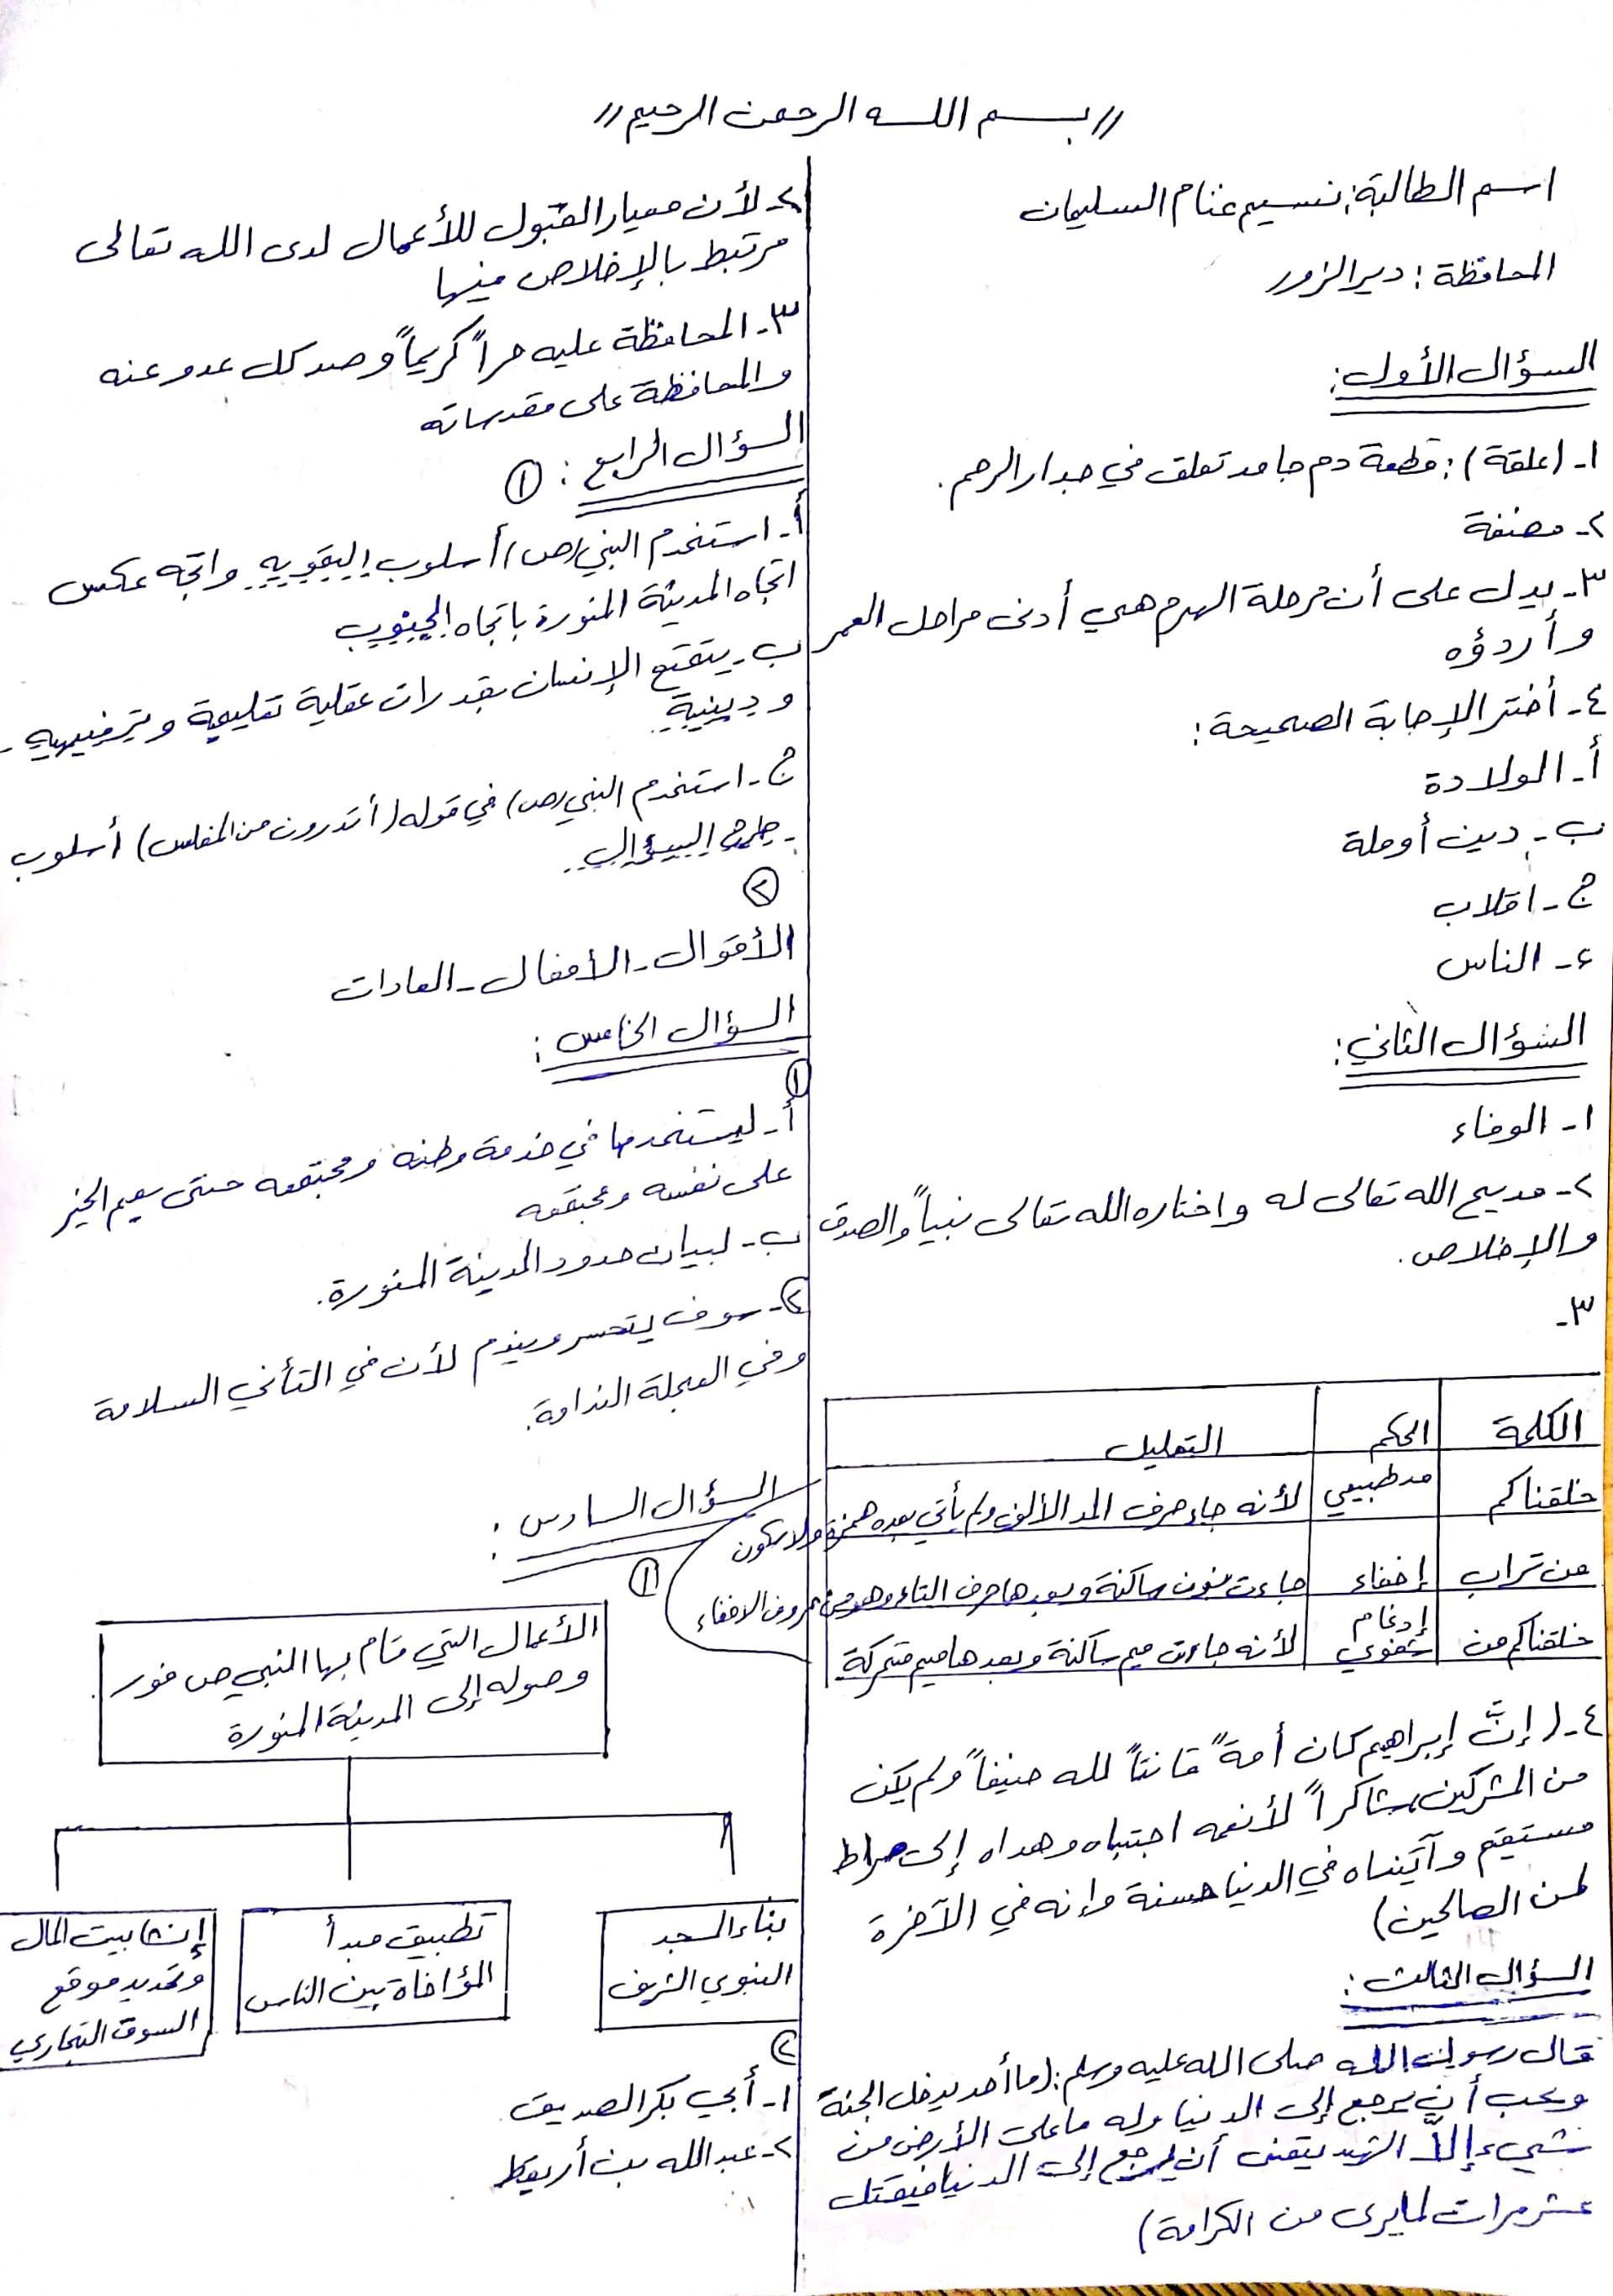 //بسم الله الرحمن الرحيم//
اسم الطالبة: نسيم غنام السليمان
المحافظة: ديرالزور
السؤال الأول:
١- (علقة): قطعة دم جامد تعلق في جدار الرحم.
٢- مضغة
٣- يدل على أن مرحلة الهرم هي أدنى مراحل العمر
وأردؤه
٤- أختر الإجابة الصحيحة:
أ- الولادة
ب- دين أو ملة
ج- اقلاب
ء- الناس
السؤال الثاني:
١- الوفاء
٢- مديح الله تعالى له واختاره الله تعالى نبياً والصدق
والإخلاص.
٣-
الكلمة الحكم التعليل
خلقناكم مد طبيعي لأنه جاء حرف المد الألف ولم يأتي بعده همزة ولا سكون
من تراب إخفاء جاءت نون ساكنة وبعدها حرف التاء وهو من حروف الاخفاء
خلقناكم من إدغام شفوي لأنه جاءت ميم ساكنة وبعدها ميم متحركة
٤- (إنَّ إبراهيم كان أمةً قانتاً لله حنيفاً ولم يكن
من المشركين، شاكراً لأنعمه اجتباه وهداه إلى صراط
مستقيم وآتيناه في الدنيا حسنة وإنه في الآخرة
لمن الصالحين)
السؤال الثالث:
قال رسول الله صلى الله عليه وسلم: (ما أحد يدخل الجنة
ويحب أن يرجع إلى الدنيا وله ما على الأرض من
شيء إلاّ الشهيد يتمنى أن يرجع إلى الدنيا فيقتل
عشر مرات لما يرى من الكرامة)
٢- لأن معيار القبول للأعمال لدى الله تعالى
مرتبط بالإخلاص فيها
٣- المحافظة عليه حراً كريماً وصد كل عدو عنه
والمحافظة على مقدساته
السؤال الرابع: ①
أ- استخدم النبي (ص) أسلوب التمويه واتجه عكس
اتجاه المدينة المنورة باتجاه الجنوب
ب- يتمتع الإنسان بقدرات عقلية تعليمية وترفيهية -
ودينية
ج- استخدم النبي (ص) في قوله (أتدرون من المفلس) أسلوب
- طرح السؤال
②
الأقوال - الأفعال - العادات
السؤال الخامس:
①
أ- ليستخدمها في خدمة وطنه ومجتمعه حتى يعيم الخير
على نفسه ومجتمعه
ب- لبيان حدود المدينة المنورة.
②- سوف يتحسر ويندم لأن في التأني السلامة
وفي العجلة الندامة.
السؤال السادس:
①
الأعمال التي قام بها النبي ص فور
وصوله إلى المدينة المنورة
بناء المسجد
النبوي الشريف
تطبيق مبدأ
المؤاخاة بين الناس
إنشا بيت المال
وتحديد موقع
السوق التجاري
②
١- أبي بكر الصديق
٢- عبد الله بن أريقط